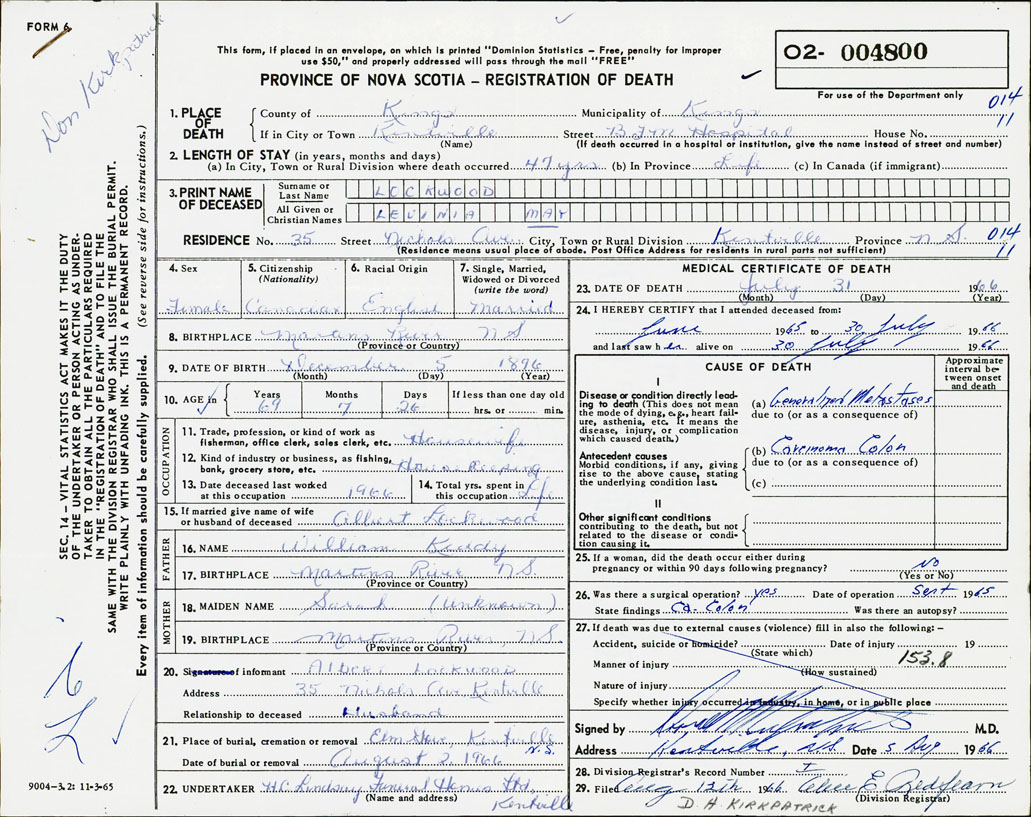 FORM 6
Don Kirkpatrick
This form, if placed in an envelope, on which is printed "Dominion Statistics – Free, penalty for improper
use $50," and properly addressed will pass through the mail "FREE"
PROVINCE OF NOVA SCOTIA – REGISTRATION OF DEATH
O2- 004800
For use of the Department only
014
11
1. PLACE OF DEATH
County of Kings Municipality of Kings
If in City or Town Kentville Street B.F.M. Hospital House No.
(Name) (If death occurred in a hospital or institution, give the name instead of street and number)
2. LENGTH OF STAY (in years, months and days)
(a) In City, Town or Rural Division where death occurred 47 yrs (b) In Province Life (c) In Canada (if immigrant)
3. PRINT NAME OF DECEASED
Surname or Last Name LOCKWOOD
All Given or Christian Names LEVINIA MAY
RESIDENCE No. 35 Street Nichols Ave. City, Town or Rural Division Kentville Province N S.
(Residence means usual place of abode. Post Office Address for residents in rural parts not sufficient)
014
11
4. Sex
Female
5. Citizenship (Nationality)
Canadian
6. Racial Origin
English
7. Single, Married, Widowed or Divorced (write the word)
Married
8. BIRTHPLACE Martins River N S
(Province or Country)
9. DATE OF BIRTH December 5 1896
(Month) (Day) (Year)
10. AGE in
Years 69
Months 7
Days 26
If less than one day old
hrs. or min.
OCCUPATION
11. Trade, profession, or kind of work as
fisherman, office clerk, sales clerk, etc. Housewife
12. Kind of industry or business, as fishing,
bank, grocery store, etc. House Keeping
13. Date deceased last worked
at this occupation 1966
14. Total yrs. spent in
this occupation Life
15. If married give name of wife
or husband of deceased Albert Lockwood
FATHER
16. NAME William Keddy
17. BIRTHPLACE Martins River N.S.
(Province or Country)
MOTHER
18. MAIDEN NAME Sarah (Unknown)
19. BIRTHPLACE Martins River, N.S.
(Province or Country)
20. Signature of informant Albert Lockwood
Address 35 Nichols Ave Kentville
Relationship to deceased Husband
21. Place of burial, cremation or removal Elm Grove, Kentville N.S.
Date of burial or removal August 2, 1966
22. UNDERTAKER H.C. Lindsay Funeral Homes Ltd.
(Name and address) Kentville
MEDICAL CERTIFICATE OF DEATH
23. DATE OF DEATH July 31 1966
(Month) (Day) (Year)
24. I HEREBY CERTIFY that I attended deceased from:
June 1965 to 30 July 1966
and last saw her alive on 30 July 1966
CAUSE OF DEATH
Approximate interval between onset and death
I
Disease or condition directly leading to death (This does not mean the mode of dying, e.g., heart failure, asthenia, etc. It means the disease, injury, or complication which caused death.)
(a) Generalized Metastases
due to (or as a consequence of)
Antecedent causes
Morbid conditions, if any, giving rise to the above cause, stating the underlying condition last.
(b) Carcinoma Colon
due to (or as a consequence of)
(c)
II
Other significant conditions
contributing to the death, but not related to the disease or condition causing it.
25. If a woman, did the death occur either during
pregnancy or within 90 days following pregnancy? No
(Yes or No)
26. Was there a surgical operation? yes Date of operation Sept 1965
State findings Ca. Colon Was there an autopsy?
27. If death was due to external causes (violence) fill in also the following: –
Accident, suicide or homicide? Date of injury 19
(State which)
153.8
Manner of injury
(How sustained)
Nature of injury
Specify whether injury occurred in industry, in home, or in public place
Signed by M.D.
Address Kentville, N.S. Date 5 Aug 1966
28. Division Registrar's Record Number
29. Filed Aug 12th 1966 Redfearn
(Division Registrar)
D. H. KIRKPATRICK
SEC. 14 – VITAL STATISTICS ACT MAKES IT THE DUTY
OF THE UNDERTAKER OR PERSON ACTING AS UNDERTAKER
TO OBTAIN ALL THE PARTICULARS REQUIRED
IN THE "REGISTRATION OF DEATH" AND TO FILE THE
SAME WITH THE DIVISION REGISTRAR WHO SHALL ISSUE THE BURIAL PERMIT.
WRITE PLAINLY WITH UNFADING INK. THIS IS A PERMANENT RECORD.
Every item of information should be carefully supplied. (See reverse side for instructions.)
9004-3.2: 11-3-65